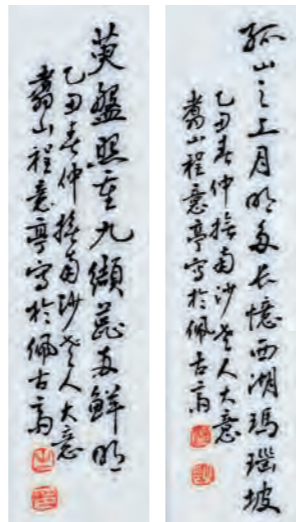 孤山之上月明多長憶西湖瑪瑙坡
乙丑春仲撫南沙老人大意
翥山程意亭寫於佩古齋
萸盤照重九纈蕊更鮮明
乙丑春仲撫南沙老人大意
翥山程意亭寫於佩古齋